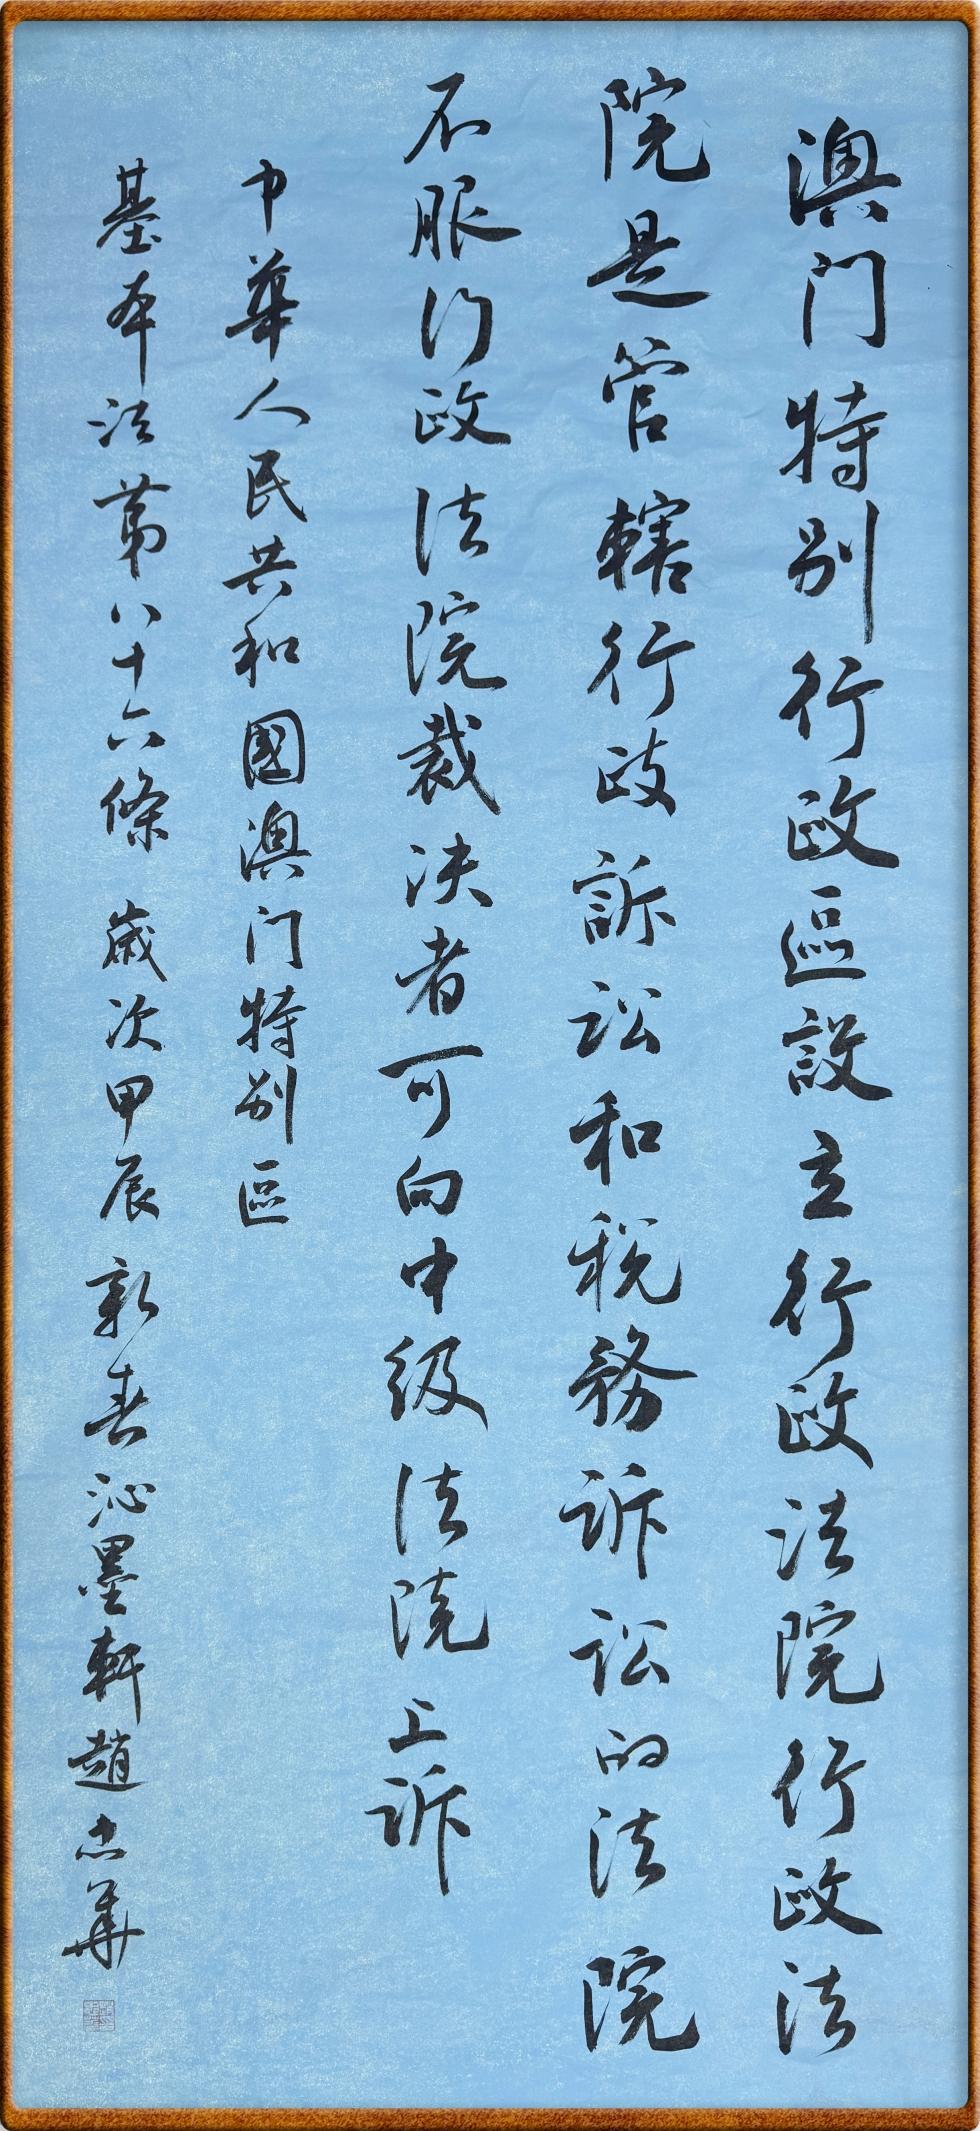 澳门特别行政區設立行政法院行政法
院是管轄行政訴訟和税務訴訟的法院
不服行政法院裁决者可向中级法院上訴
中華人民共和國澳门特别區
基本法第八十六條 歲次甲辰新春沁墨軒趙忠華